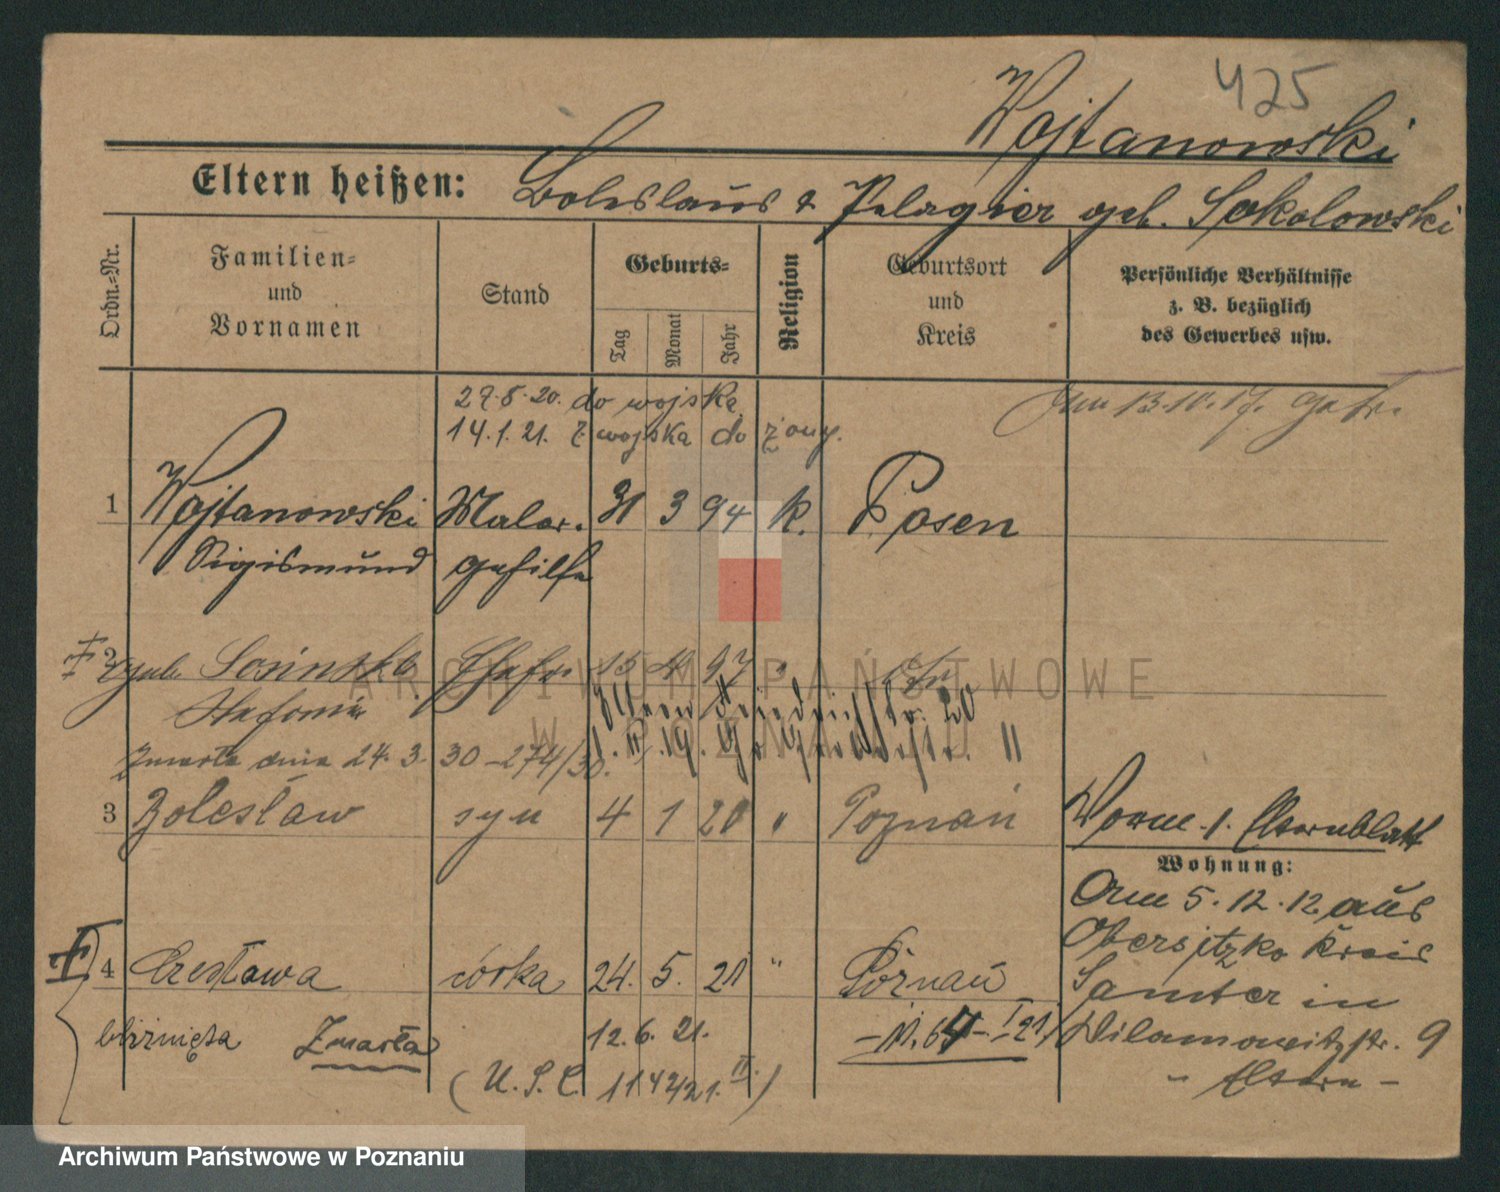 425
Wojtanowski
Eltern heißen: Boleslaus & Pelagia geb. Sokolowski
Ordn.-Nr.
Familien- und Vornamen
Stand
Geburts-
Tag
Monat
Jahr
Religion
Geburtsort und Kreis
Persönliche Verhältnisse z. B. bezüglich des Gewerbes usw.
27.8.20. do wojska
14.1.21. z wojska do żony.
13.10.17.
1 Wojtanowski Maler- 31 3 94 k. Posen
Sigismund gehilfe
2 geb. Sosinska Ehefr. 15 97 "
Stefania
20
Zmarła dnia 24.3.30 - 274/30.
3 Bolesław syn 4 1 20 " Poznań
Worm. s. Elternblatt
Wohnung:
Am 5.12.12. aus
Obersitzko Kreis
Samter in
Wilamowitzstr. 9
- Eltern -
4 Czesława córka 24. 5. 21 " Poznań
bliźnięta Zmarła 12.6.21.
(U.S.C. )
ARCHIWUM PAŃSTWOWE
W POZNANIU
Archiwum Państwowe w Poznaniu